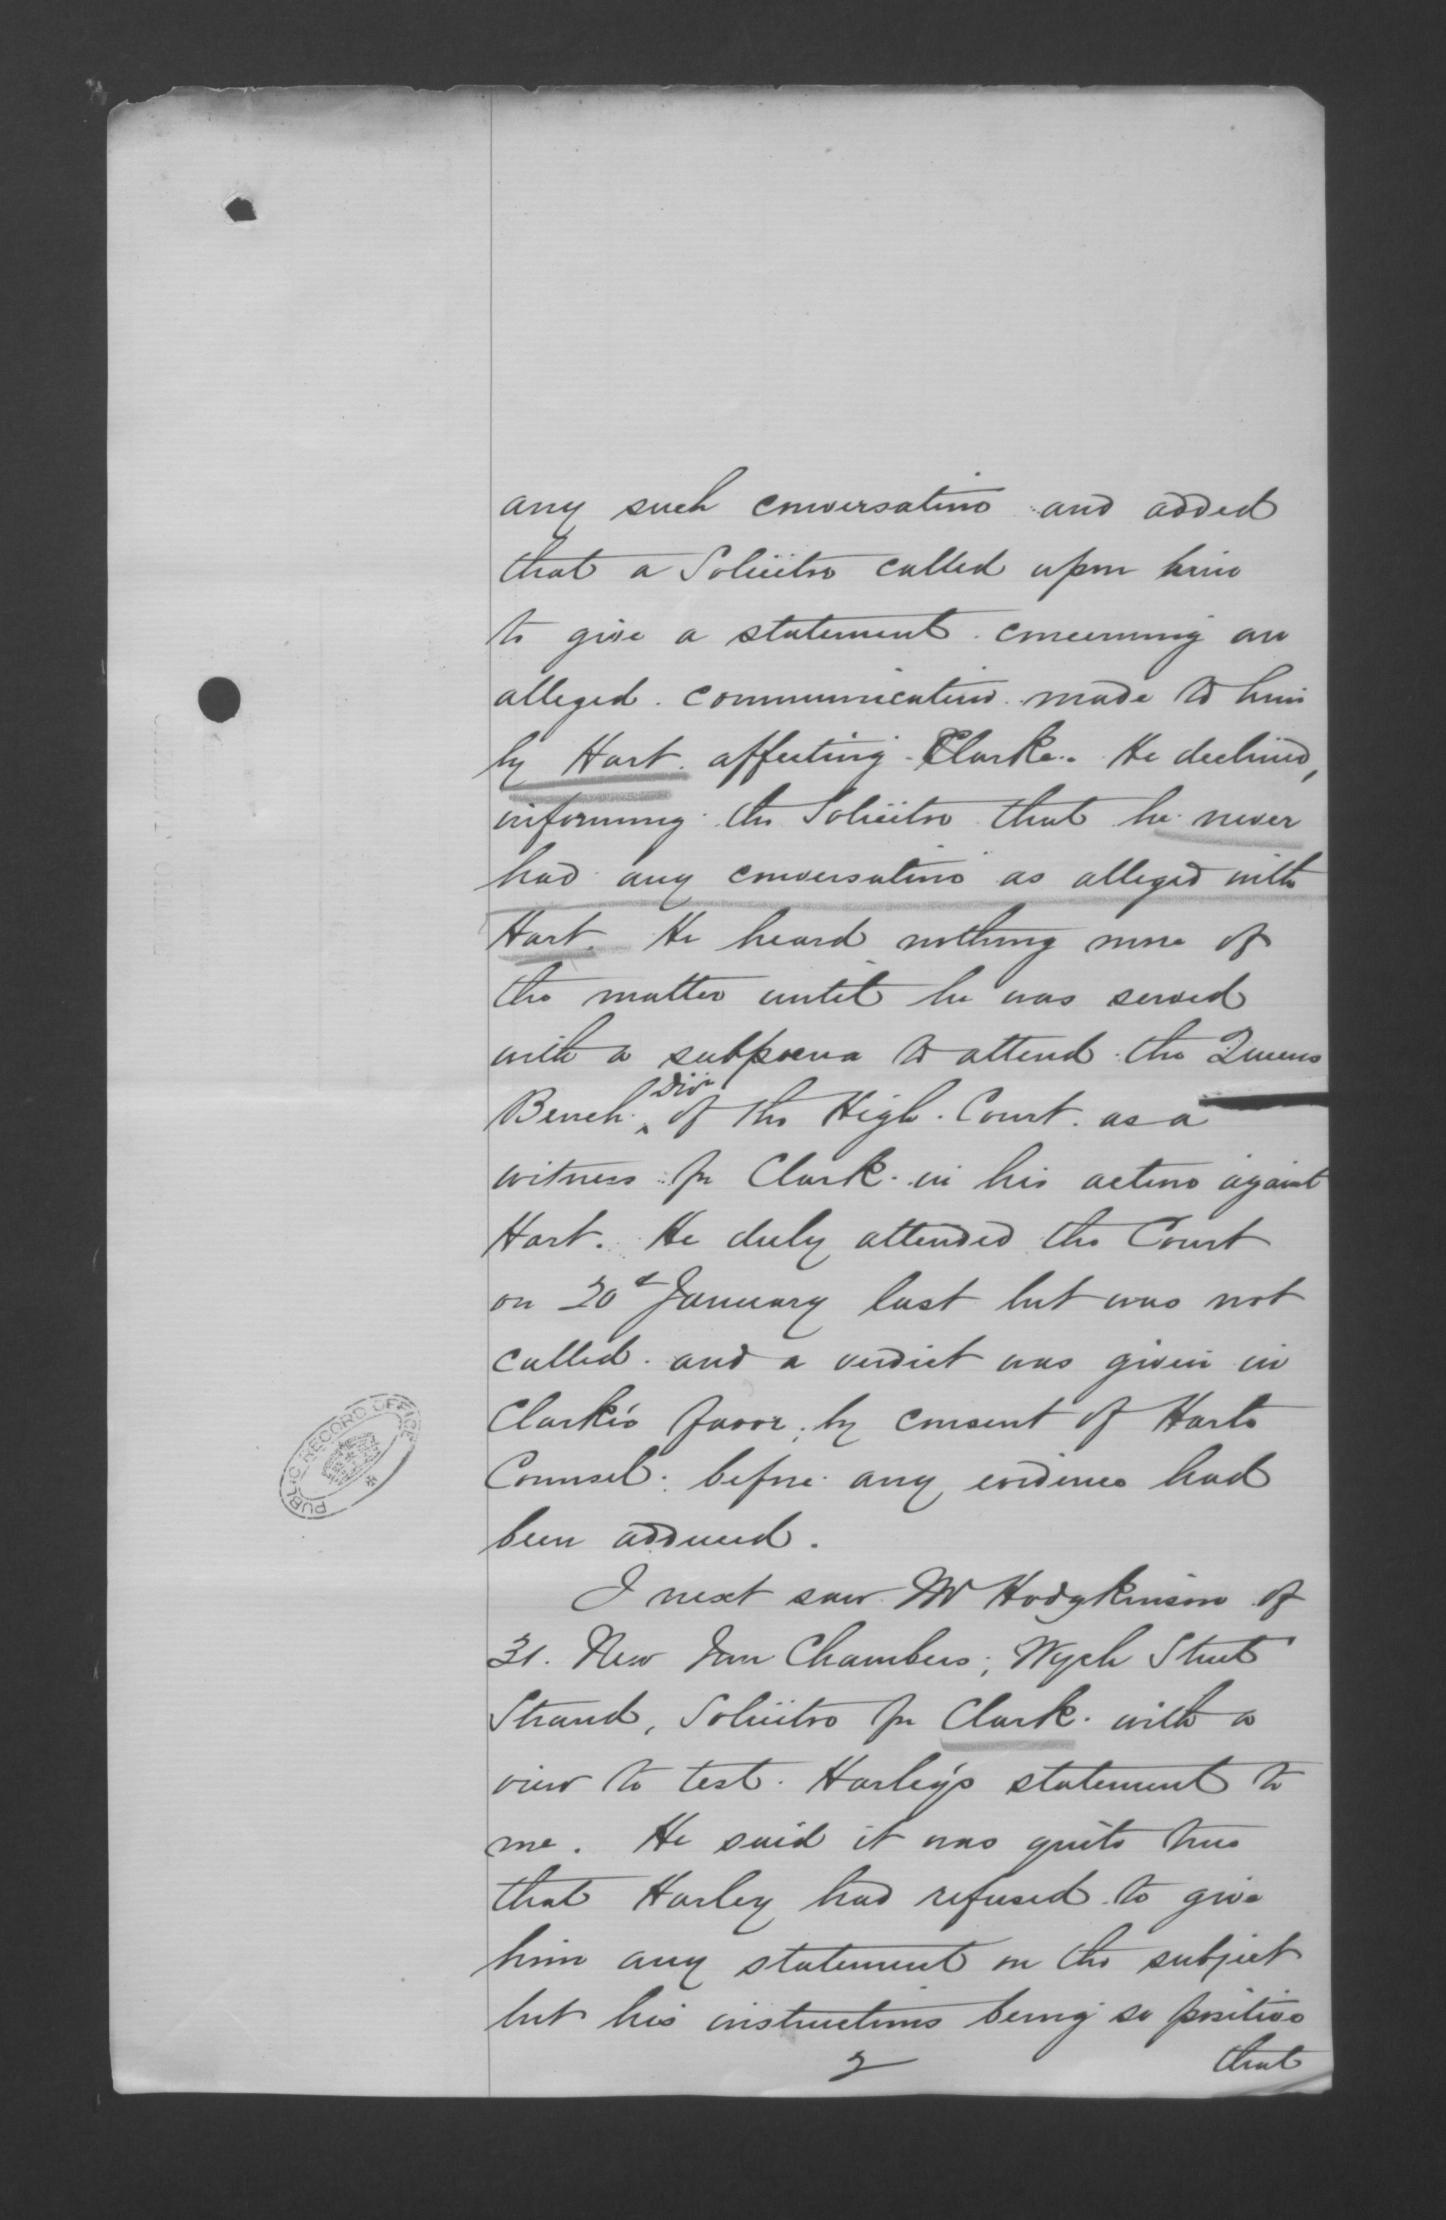 any such conversation and added
that a Solicitor called upon him
to give a statement concerning an
alleged communication made to him
by Hart affecting Clarke. He declined,
informing the Solicitor that he never
had any conversation as alleged with
Hart. He heard nothing more of
the matter until he was served
with a subpoena to attend the Queens
Bench Divn of the High Court as a
witness for Clark in his action against
Hart. He duly attended the Court
on 20th January last but was not
called and a verdict was given in
Clark's favor, by consent of Harts
Counsel before any evidence had
been adduced.
I next saw Mr Hodgkinson of
31. New Inn Chambers, Wych Street
Strand, Solicitor for Clark with a
view to test Harley's statement to
me. He said it was quite true
that Harley had refused to give
him any statement on the subject
but his instructions being so positive
2
that
PUBLIC RECORD OFFICE